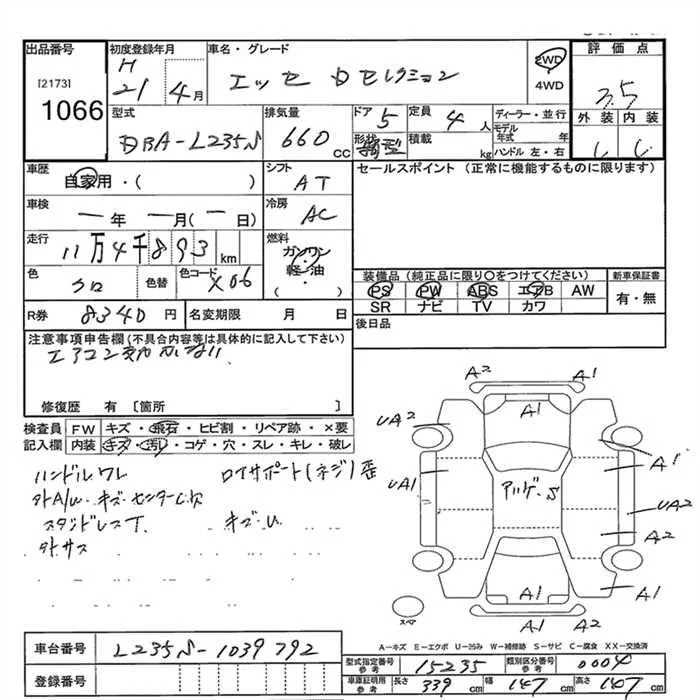 出品番号 初度登録年月 車名・グレード 評価点
[2173] H 21 4月 エッセ Dセレクション 2WD 4WD 3.5
1066
型式 排気量 ドア 5 定員 4人 ディーラー・並行 外装 内装
DBA-L235S 660 CC 形状 積載 kg モデル年式 年 ハンドル 左・右
車歴 自家用・( ) シフト AT セールスポイント(正常に機能するものに限ります)
車検 ー年 ー月(ー日) 冷房 AC
走行 11万4千893km 燃料 ガソリン・軽油・( )
色 クロ 色替 色コード X06 装備品(純正品に限り○をつけてください) 新車保証書
PS PW ABS エアB AW 有・無
SR ナビ TV カワ
R券 8340円 名変期限 月 日 後日品
注意事項申告欄(不具合内容等は具体的に記入して下さい)
エアコン
修復歴 有 [箇所 ]
検査員 FW キズ・飛石・ヒビ割・リペア跡・×要
記入欄 内装 キズ・・コゲ・穴・スレ・キレ・破レ
ハンドルワレ ロイサポート(ネジ)
外A/W・キズ・センターC欠
スタッドレスT. キズ・U
外サス
A2 A1
UA2 A1
A1
UA1 アリゲ・S UA2
A2
A1 A1
A1 A2
スペア
A-キズ E-エクボ U-凹み W-補修跡 S-サビ C-腐食 XX-交換済
車台番号 L235S-1039792 型式指定番号 参考 15235 類別区分番号 参考 0004
登録番号 車庫証明用 参考 長さ 339cm 幅 147cm 高さ 147cm